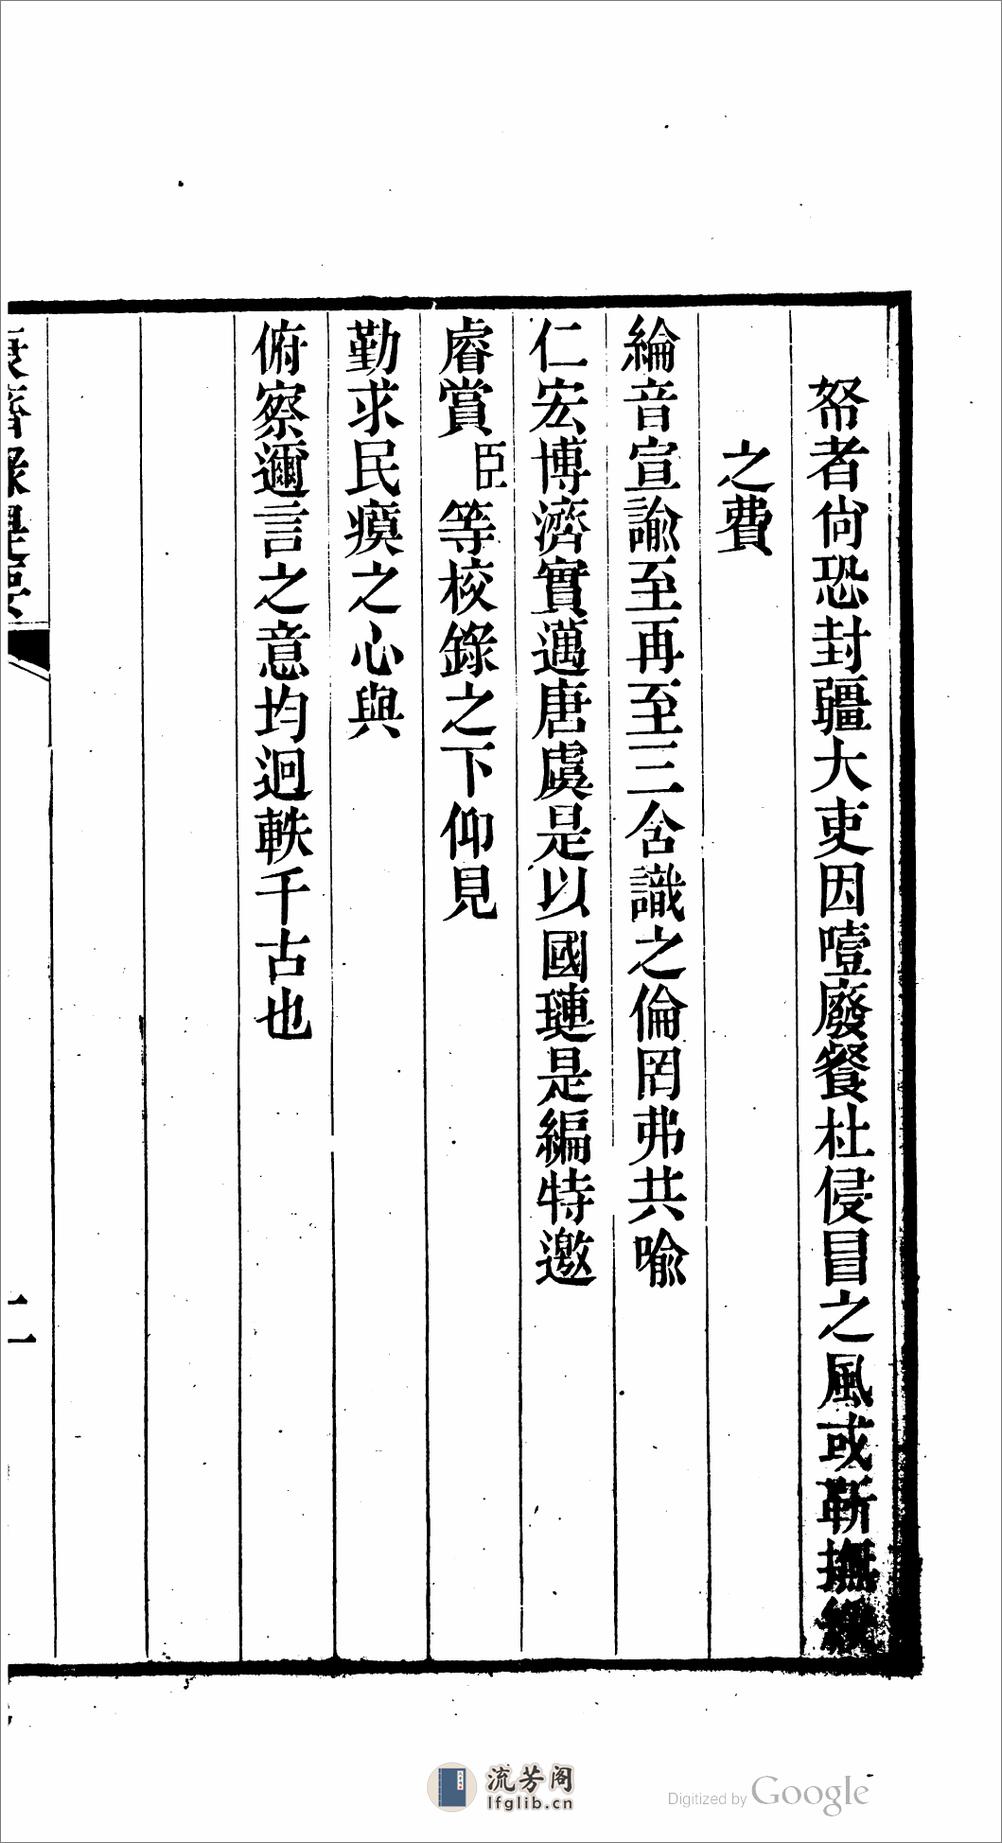 帑者尙恐封疆大吏因噎廢餐杜侵冒之風或靳撫綏
之費
綸音宣諭至再至三含識之倫罔弗共喩
仁宏博濟實邁唐虞是以國璉是編特邀
睿賞臣等校錄之下仰見
勤求民瘼之心與
俯察邇言之意均迥軼千古也
康濟錄提要
二
流芳阁
lfglib.cn
Digitized by Google